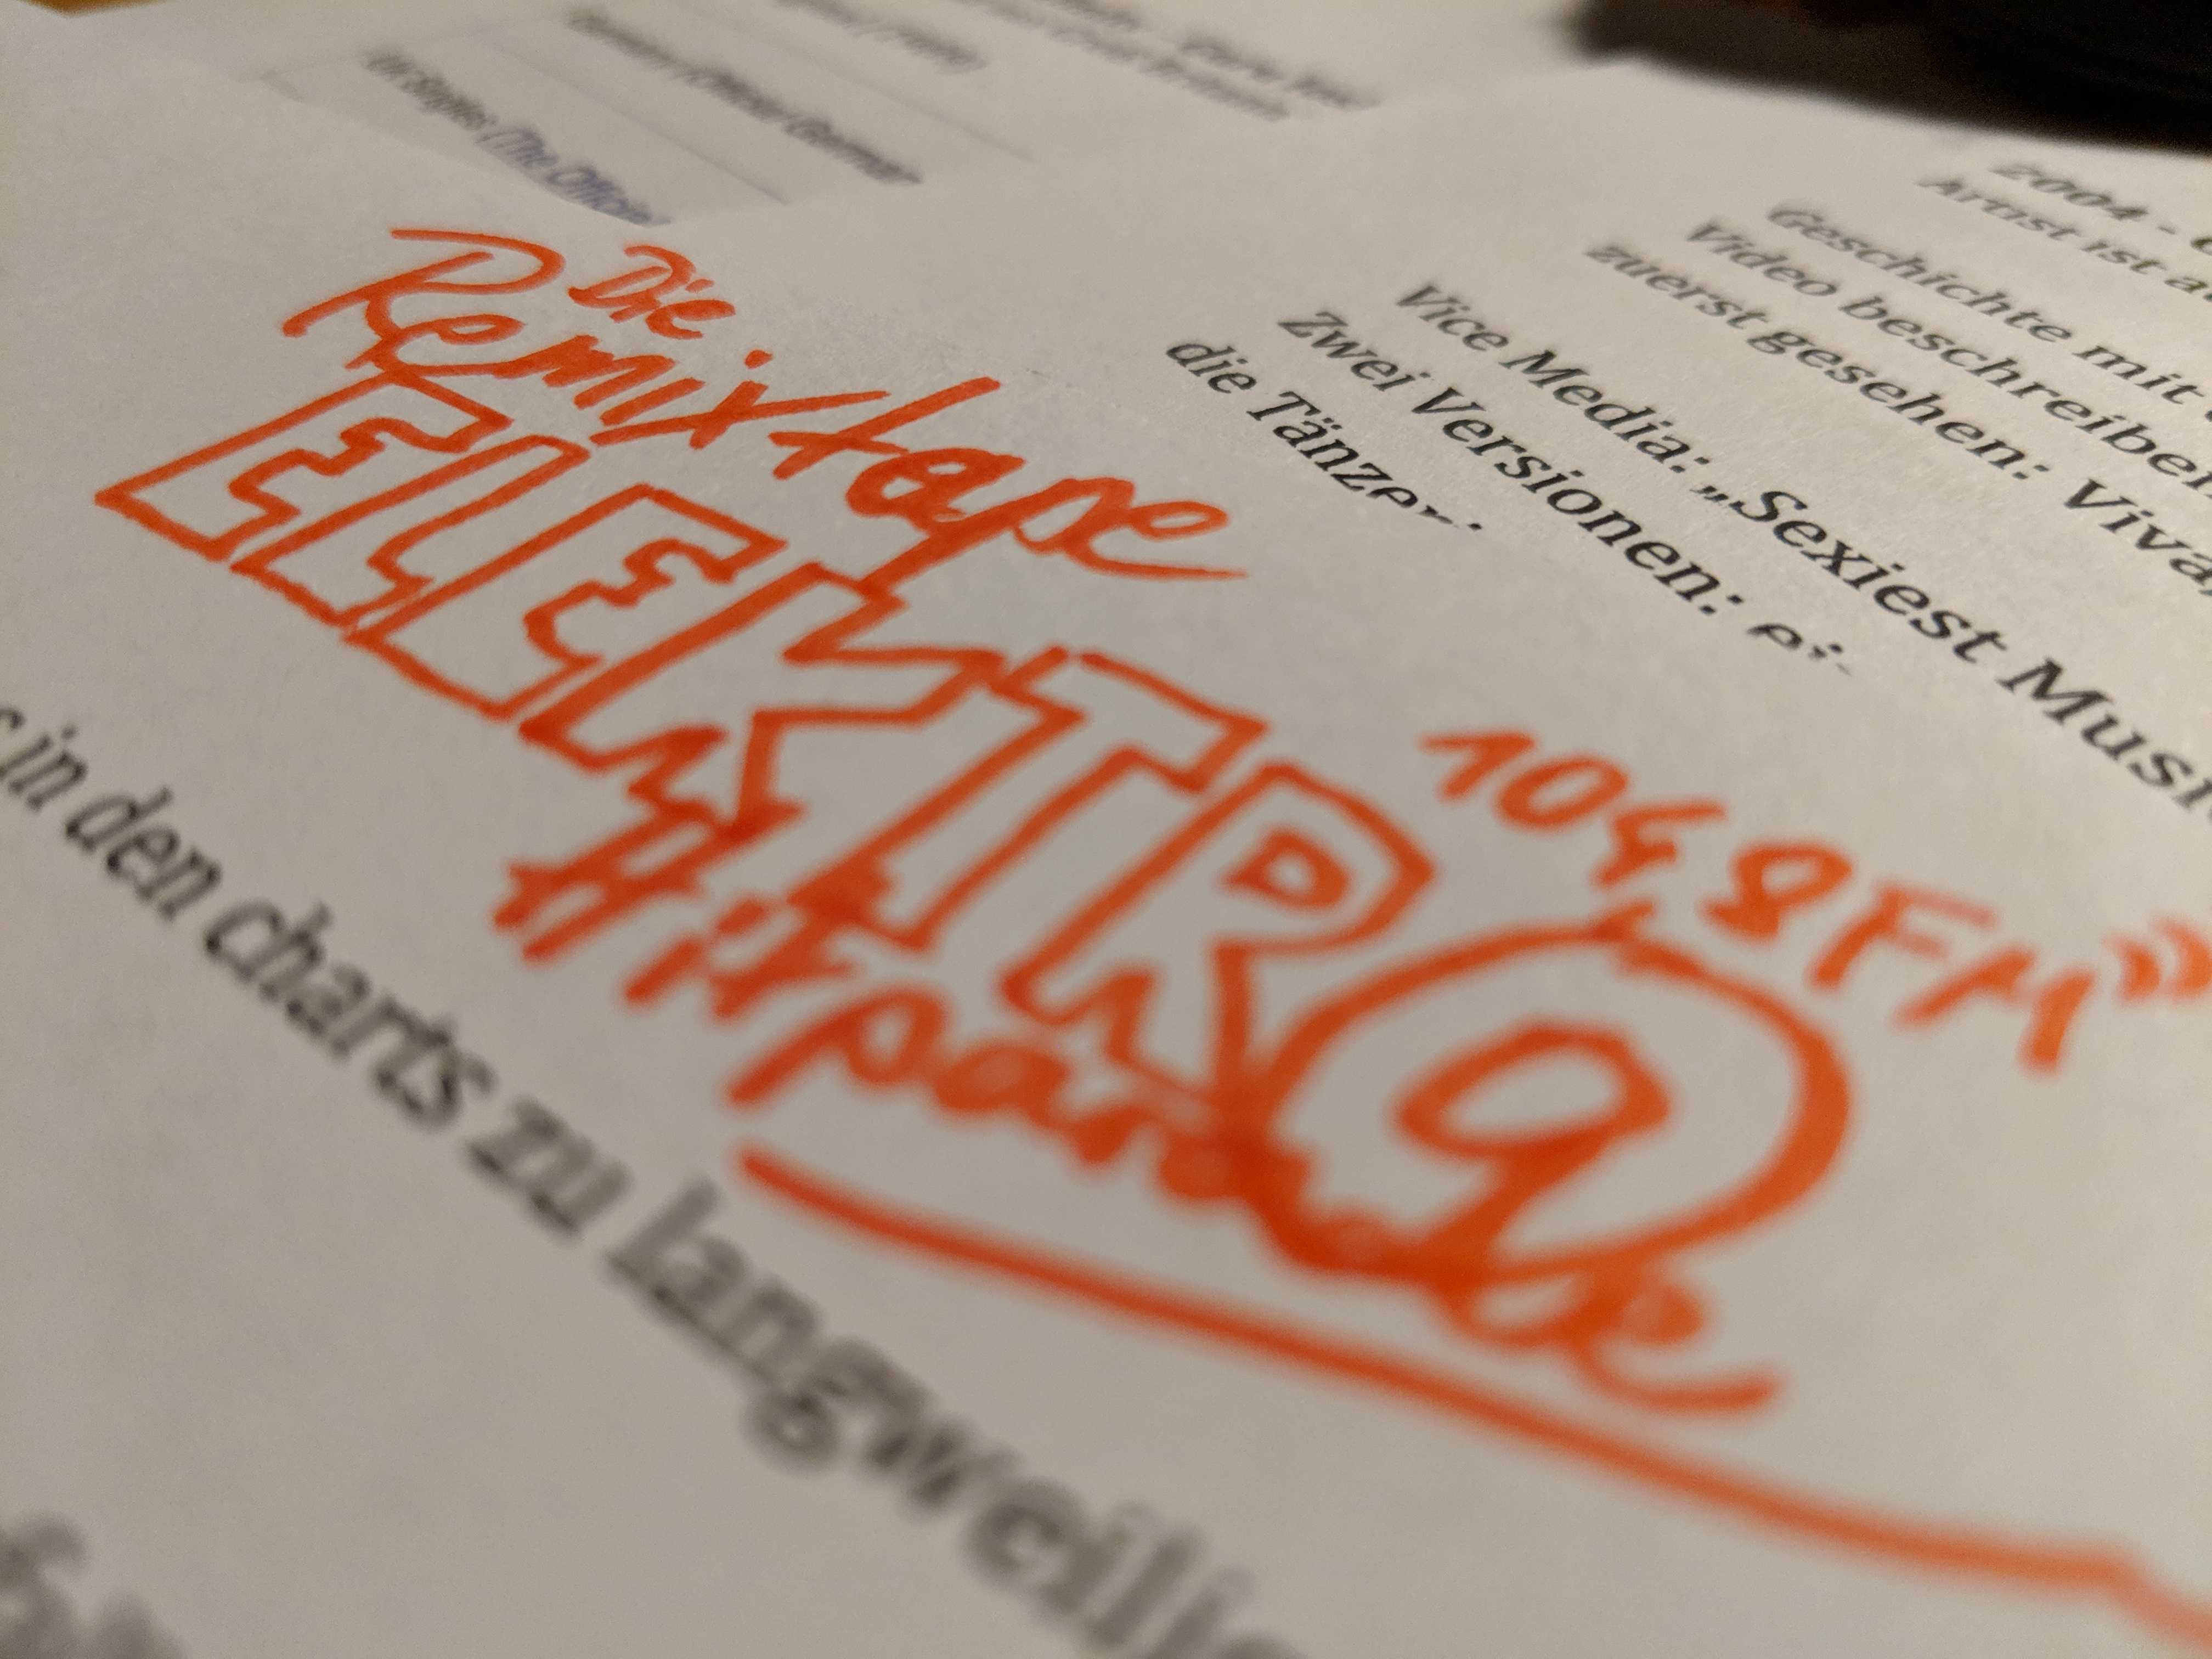 UK Singles (The Official
Germany (Official German
2004 -
Artist ist
Geschichte mit
Video beschreiben
zuerst gesehen: Viva,
Vice Media: „Sexiest Musi
Zwei Versionen:
die Tänzer
Die
Remixtape
ELEKTRO
Hitparade
104,8 FM
in den charts zu langweilig